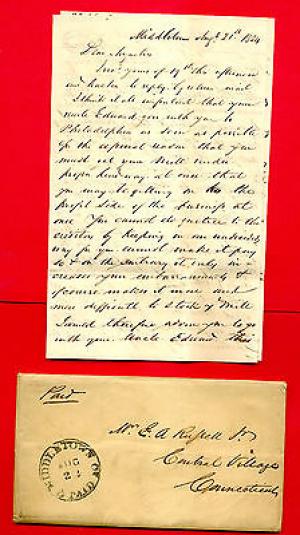 Middletown Augt 21st 1854
Dear
yours of 19th this afternoon
and hasten to reply by return mail
I think it is important that your
uncle Edward go with you to
Philadelphia as soon as possible
for the especial reason that you
must get your Mill under
proper headway at once that
you may be getting on to the
profit side of the business at
once You cannot do justice to the
creditors by keeping on an
way for you cannot make it pay
so & on the contrary it only in
creases your embarrassments &
of course makes it more and
more difficult to stock yr Mill
I would therefore advise you to go
with your Uncle Edward this
Paid
MIDDLETOWN CT
AUG
21
Mr. E. A. Russell Jr
Central Village
Connecticut